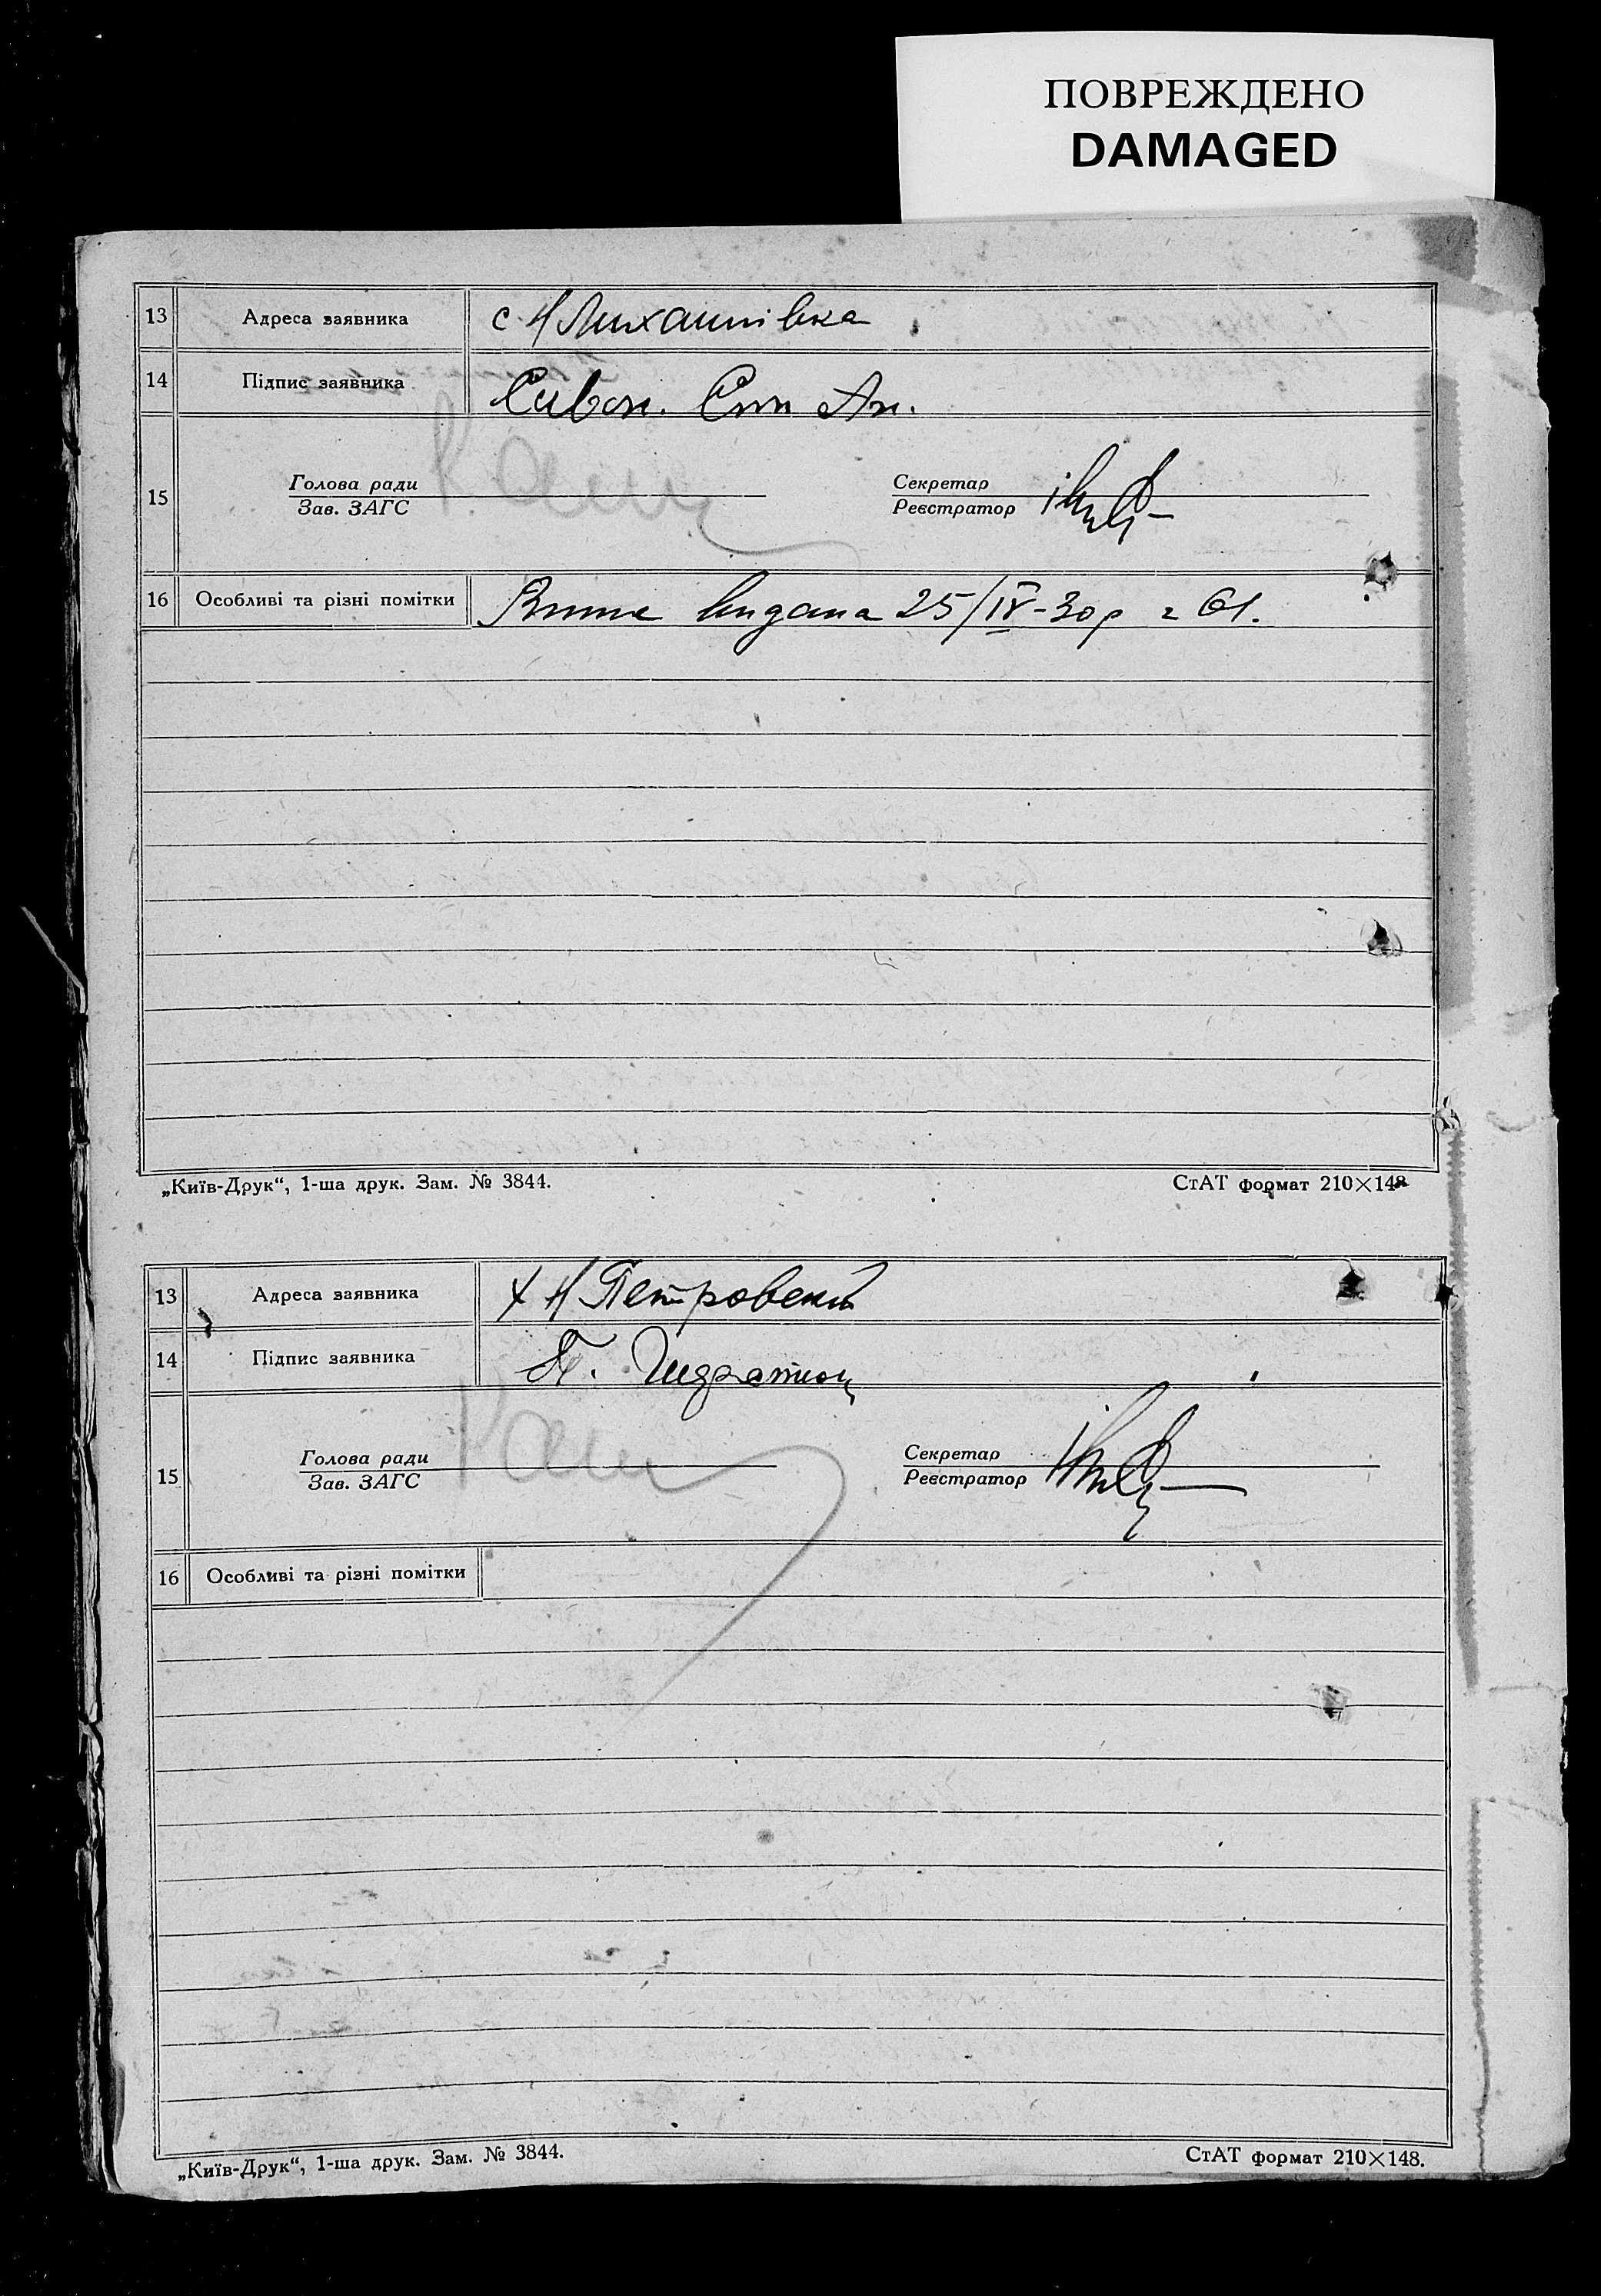 ПОВРЕЖДЕНО
DAMAGED
13 Адреса заявника с. Н Михайлівка
14 Підпис заявника
15 Голова ради
Зав. ЗАГС
Секретар
Реєстратор
16 Особливі та різні помітки видана 25/IV-30р
„Київ-Друк“, 1-ша друк. Зам. № 3844. СтАТ формат 210×148
13 Адреса заявника х Н Петровский
14 Підпис заявника
15 Голова ради
Зав. ЗАГС
Секретар
Реєстратор
16 Особливі та різні помітки
„Київ-Друк“, 1-ша друк. Зам. № 3844. СтАТ формат 210×148.